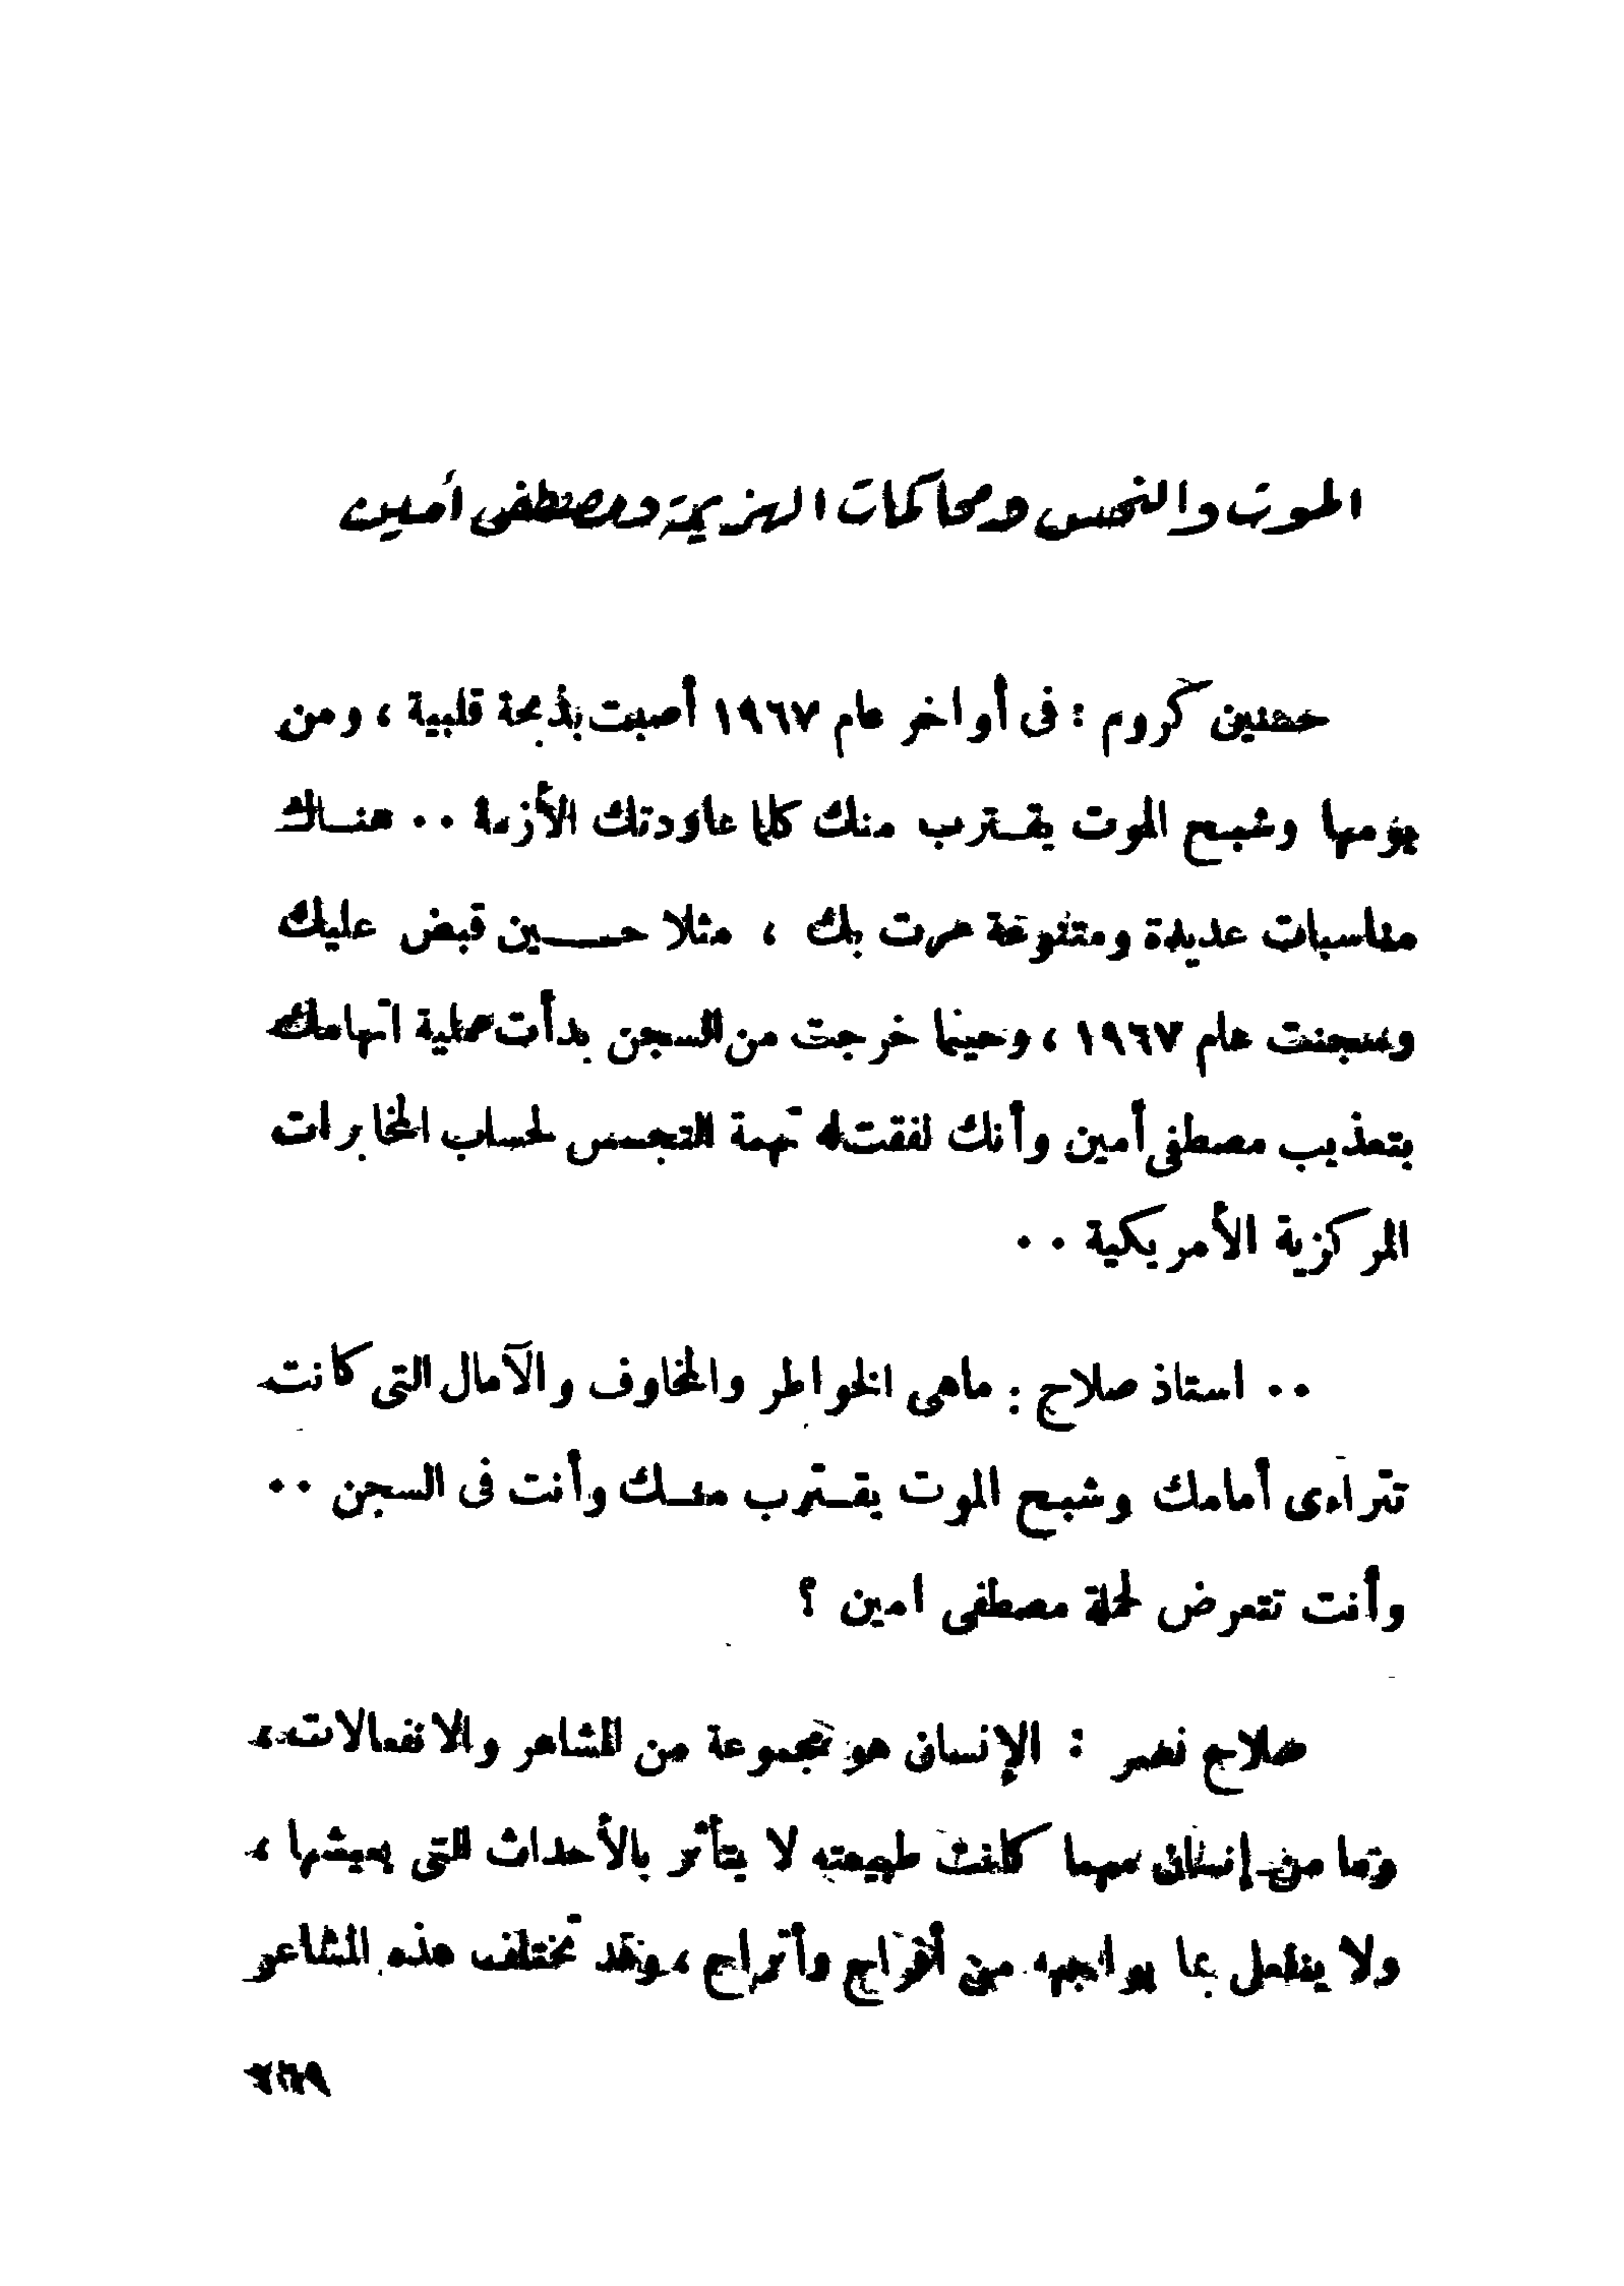 الموت والنحس ومحاكمات الهزيمة ومصطفى أمين
حسنين كروم : فى أواخر عام ١٩٦٧ أصبت بذبحة قلبية ، ومن
يومها وشبح الموت يقترب منك كلما عاودتك الأزمة ٠٠ هناك
مناسبات عديدة ومتنوعة مرت بك ، مثلا حين قبض عليك
وسجنت عام ١٩٦٧ ، وحينما خرجت من السجن بدأت عملية اتهامك
بتعذيب مصطفى أمين وأنك لفقت له تهمة التجسس لحساب المخابرات
المركزية الأمريكية ٠٠
٠٠ استاذ صلاح : ماهى الخواطر والمخاوف والآمال التى كانت
تتراءى أمامك وشبح الموت يقترب منك وأنت فى السجن ٠٠
وأنت تتعرض لحملة مصطفى امين ؟
صلاح نصر : الإنسان هو مجموعة من المشاعر والانفعالات ،
وما من إنسان مهما كانت طبيعته لا يتأثر بالأحداث التى يعيشها ،
ولا ينفعل بما يواجهه من أفراح وأتراح ، وقد تختلف هذه المشاعر